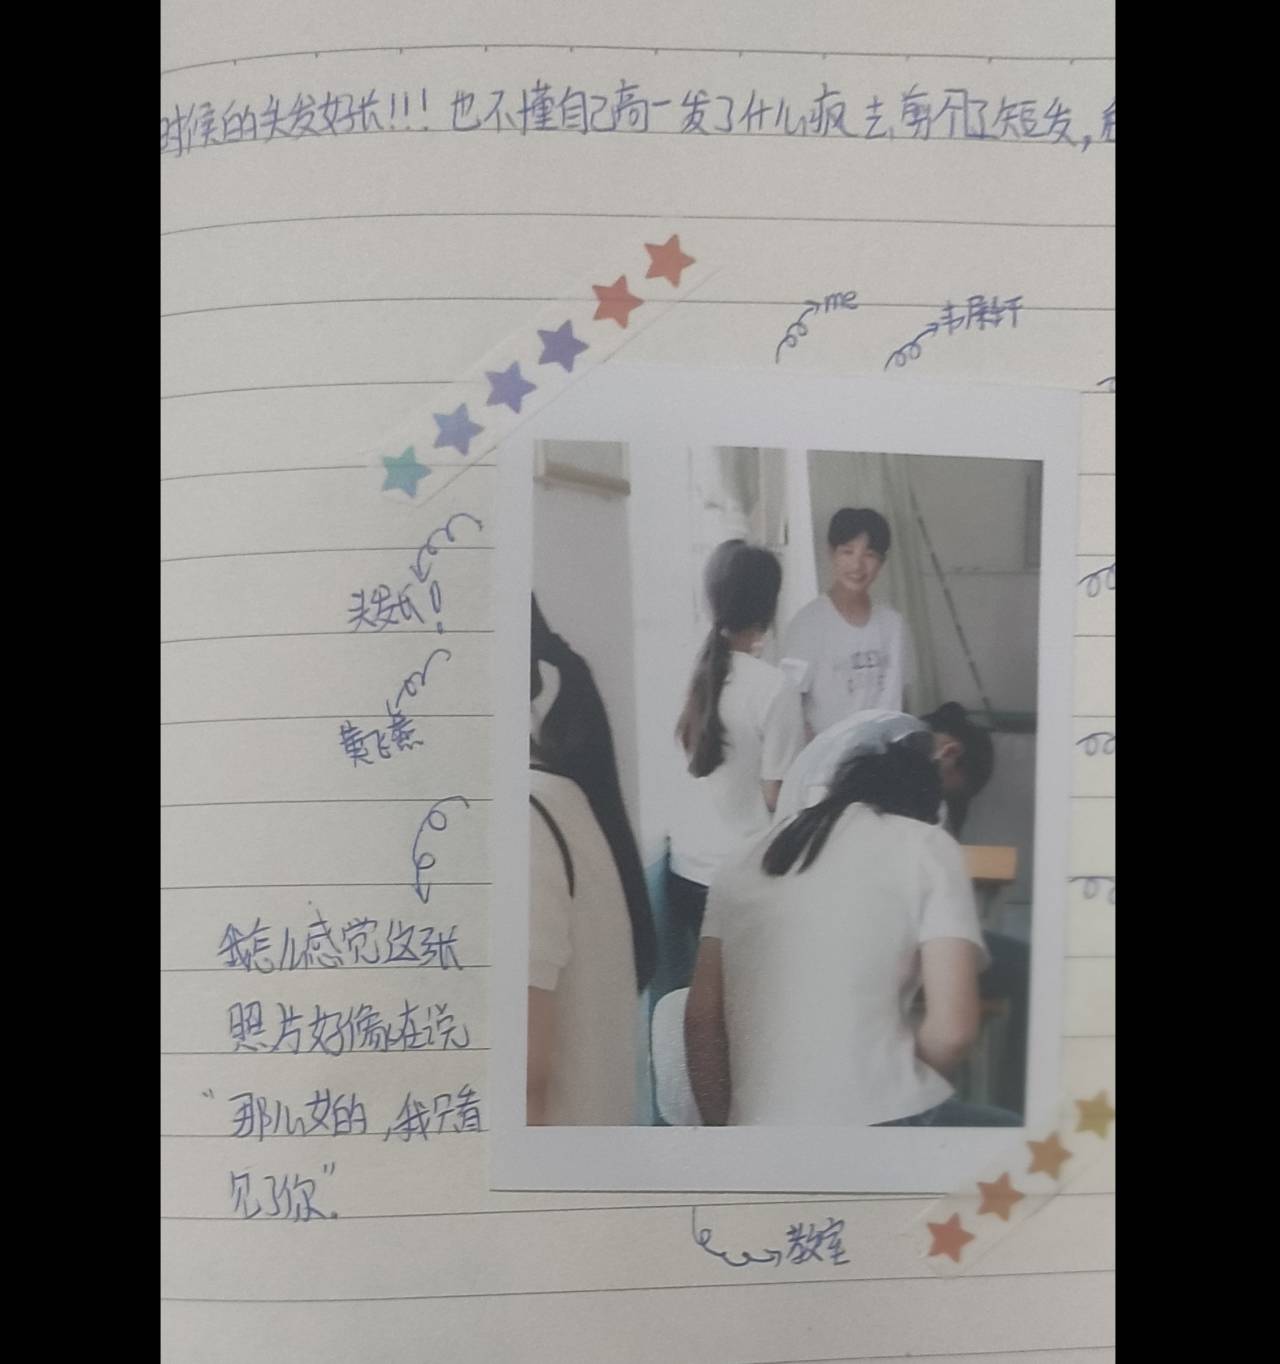 时候的头发好长!!! 也不懂自己高一发了什么疯去剪了短发,
me
韦
头发长!
黄飞燕
我怎么感觉这张
照片好像在说
“那么女的,我只看
见了你”.
教室